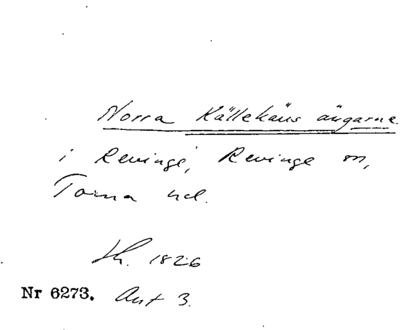 Norra Källekärs ängarne
i Revinge, Revinge sn,
Torna hd.
Sk. 1826
Nr 6273. Akt 3.